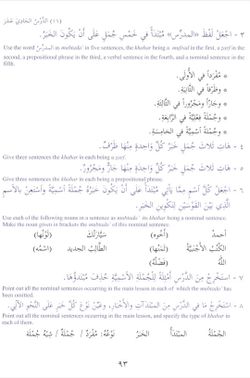 (١١) الدَّرْسُ الحَادِيَ عَشَرَ
٣ - اجْعَلْ لَفْظَ «المدرِّس» مُبْتَدَأً في خَمْسِ جُمَلٍ عَلَى أَنْ يَكُونَ الخَبَرُ:
Use the word المدرس as mubtada' in five sentences, the khabar being a mufrad in the first, a zarf in the
second, a prepositional phrase in the third, a verbal sentence in the fourth, and a nominal sentence in the
fifth.
* مُفْرَدًا في الأُولَى.
* وَظَرْفًا في الثَّانِيَةِ.
* وَجَارًّا وَمَجْرُورًا في الثَّالِثَةِ.
* وَجُمْلَةً فِعْلِيَّةً في الرَّابِعَةِ.
* وَجُمْلَةً اسْمِيَّةً في الخَامِسَةِ.
٤ - هَاتِ ثَلاثَ جُمَلٍ خَبَرُ كُلِّ وَاحِدَةٍ مِنْهَا ظَرْفٌ.
Give three sentences the khabar in each being a zarf.
٥ - هَاتِ ثَلاثَ جُمَلٍ خَبَرُ كُلِّ وَاحِدَةٍ مِنْهَا جَارٌّ وَمَجْرُورٌ.
Give three sentences the khabar in each being a prepositional phrase.
٦ - اجْعَلْ كُلَّ اسْمٍ مِمَّا يَأْتِي مُبْتَدَأً عَلَى أَنْ يَكُونَ خَبَرُهُ جُمْلَةً اسْمِيَّةً وَاسْتَعِنْ بِالاسْمِ
الَّذِي بَيْنَ القَوْسَيْنِ لِتَكْوِينِ الخَبَرِ.
Use each of the following nouns in a sentence as mubtada' its khabar being a nominal sentence.
Make the noun given in brackets the mubtada' of this sentence.
أحمدُ (أخوه) سَيَّارَتُكَ (لَوْنُهَا)
الكُتُبُ الأَجْنَبِيَّةُ (ثَمَنُهَا) الطَّالِبُ الجديد (اسْمُه)
اللهُ (فَضْلُهُ)
٧ - اسْتَخْرِجْ مِنَ الدَّرْسِ أَمْثِلَةً لِلْجُمْلَةِ الاسْمِيَّةِ حُذِفَ مُبْتَدَؤُهَا.
Point out all the nominal sentences occurring in the main lesson in each of which the mubtada' has
been omitted.
٨ - اسْتَخْرِجْ مَا في الدَّرْسِ مِنَ المبْتَدَآتِ وَالأَخْبَارِ، وَعَيِّنْ نَوْعَ كُلِّ خَبَرٍ عَلَى النَّحْوِ الآتي.
Point out all the nominal sentences occurring in the main lesson, and specify the type of khabar in
each of them.
الجُمْلَةُ المبْتَدَأُ الخَبَرُ نَوْعُهُ: مُفْرَدٌ / جُمْلَةٌ / شِبْهُ جُمْلَةٍ
٩٣